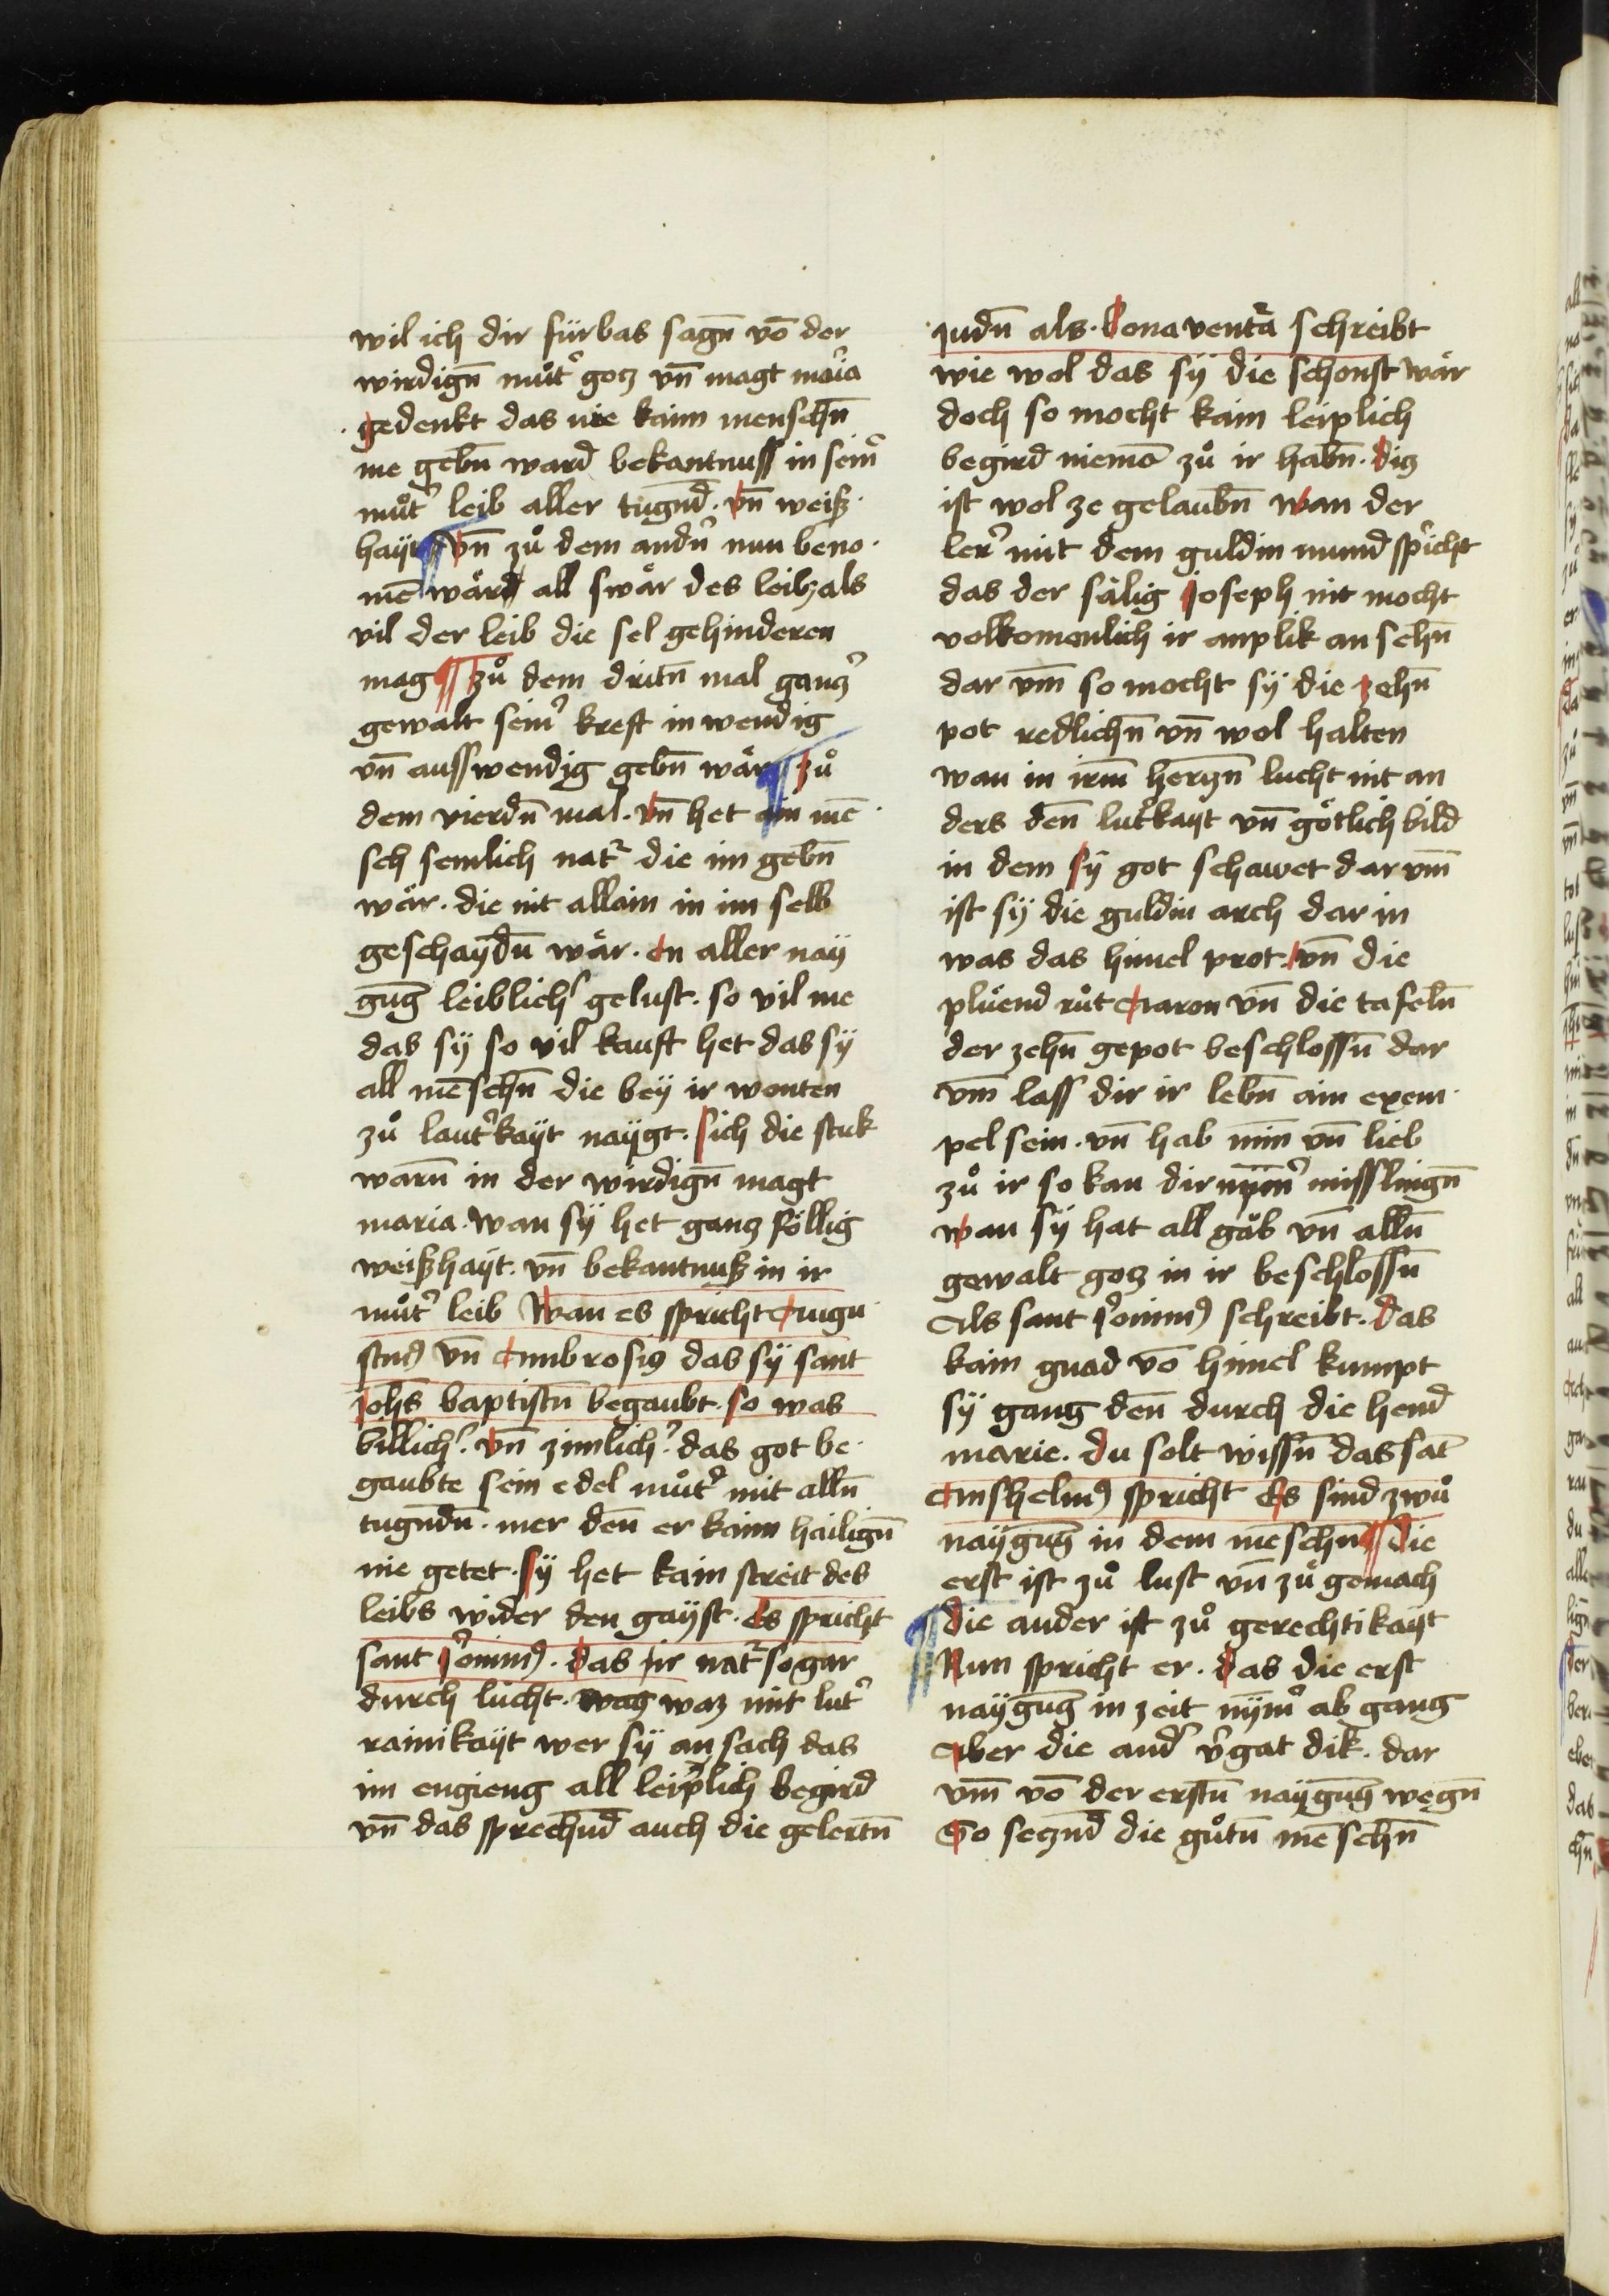 wil ich dir fürbas sagn̄ vō der
wirdign̄ muͦt᷑ gotz vn̄ magt mͣia
gedenkt das nie kaim menschn̄
me gebn̄ ward bekantnuss in sein᷑
muͦt᷑ leib aller tugnd̄ · vn̄ weisz ·
hayt ¶ vn̄ zuͦ dem andn᷑ nun beno ·
mē wärd all swär des leibz als
vil der leib die sel gehinderen
mag ¶ zuͦ dem dritn̄ mal gantz᷑
gewalt sein᷑ kreft inwendig
vn̄ ausswendig gebn̄ wär ¶ zuͦ
dem vierdn̄ mal · vn̄ het ain mē ·
sch semlich nat᷑ die im gebn̄
wär · die nit allain in im selb
geschaydn̄ wär · En aller nay
gūg leiblich᷑ gelust · so vil me
das sy so vil kauft het das sy
all mēschn̄ die bey ir wonten
zuͦ laut᷑kayt naygt · sich die stuk
warn̄ in der wirdign̄ magt
maria · wan sy het gantz föllig
weiszhayt · vn̄ bekantnusz in ir
muͦt᷑ leib Wan es spricht Augu ·
stinꝰ vn̄ Ambrosiꝰ das sy sant
Johēs baptistn̄ begaubt · so was
billich᷑ · vn̄ zimlich᷑ · das got be ·
gaubte sein edel muͦt᷑ mit alln̄
tugndn̄ · mer den̄ er kaim hailign̄
nie getet · sy het kain streit des
leibs wider den gayst · Es spricht
sant Jeronimꝰ · das ir nat᷑ so gar
durch lücht · waz mit lut᷑
rainikayt wer sy an sach das
im engieng all leiplich begird
vn̄ das sprechnd̄ auch die gelertn̄
Judn̄ als · Bonaventᷓa schreibt
wie wol das sy die schonst wär
doch so mocht kain leiplich
begird niemā zuͦ ir habn̄ · ditz
ist wol ze gelaubn̄ wan der
ler᷑ mit dem guldin mund spͥcht
das der sälig Joseph nit mocht
volkomenlich ir anplik an sehn̄
dar vm̄ so mocht sy die zehn̄
pot redlichn̄ vn̄ wol halten
wan in irm̄ hertzn̄ lucht nit an
ders den̄ lut᷑kayt vn̄ götlich bild
in dem sy got schawet dar vm̄
ist sy die guldin arch dar in
was das himel prot · vn̄ die
pluͤend ruͦt Aaron vn̄ die tafeln̄
der zehn̄ gepot beschlossn̄ dar
vm̄ lass dir ir lebn̄ ain exem ·
pel sein · vn̄ hab min̄ vn̄ lieb
zuͦ ir so kan dir nym̄᷑ misslingn̄
wan sy hat all gäb vn̄ alln̄
gewalt gotz in ir beschlossn̄
Als sant Jeronimꝰ schreibt · das
kain gnad vō himel kumpt
sy gang den̄ durch die hend
marie · du solt wissn̄ das sāt
Anshelmꝰ spricht Es sind zwuͦ
naygūg in dem mēschn̄ ¶ die
erst ist zuͦ lust vn̄ zuͦ gemach
¶ die ander ist zuͦ gerechtikayt
Nun spricht er · das die erst
naygūg in zeit nym᷑ ab gang
Aber die and᷑ v᷑gat dik · dar
vm̄ vō der erstn̄ naygūg wegn̄
So setznd̄ die guͦtn̄ mēschn̄